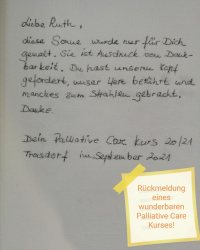 Liebe Ruth,
diese Sonne wurde nur für Dich
gemalt. Sie ist Ausdruck von Dank-
barkeit. Du hast unseren Kopf
gefordert, unser Herz berührt und
manches zum Strahlen gebracht.
Danke.
Dein Palliative Care Kurs 20/21
Troisdorf im September 2021
Rückmeldung
eines
wunderbaren
Palliative Care
Kurses!